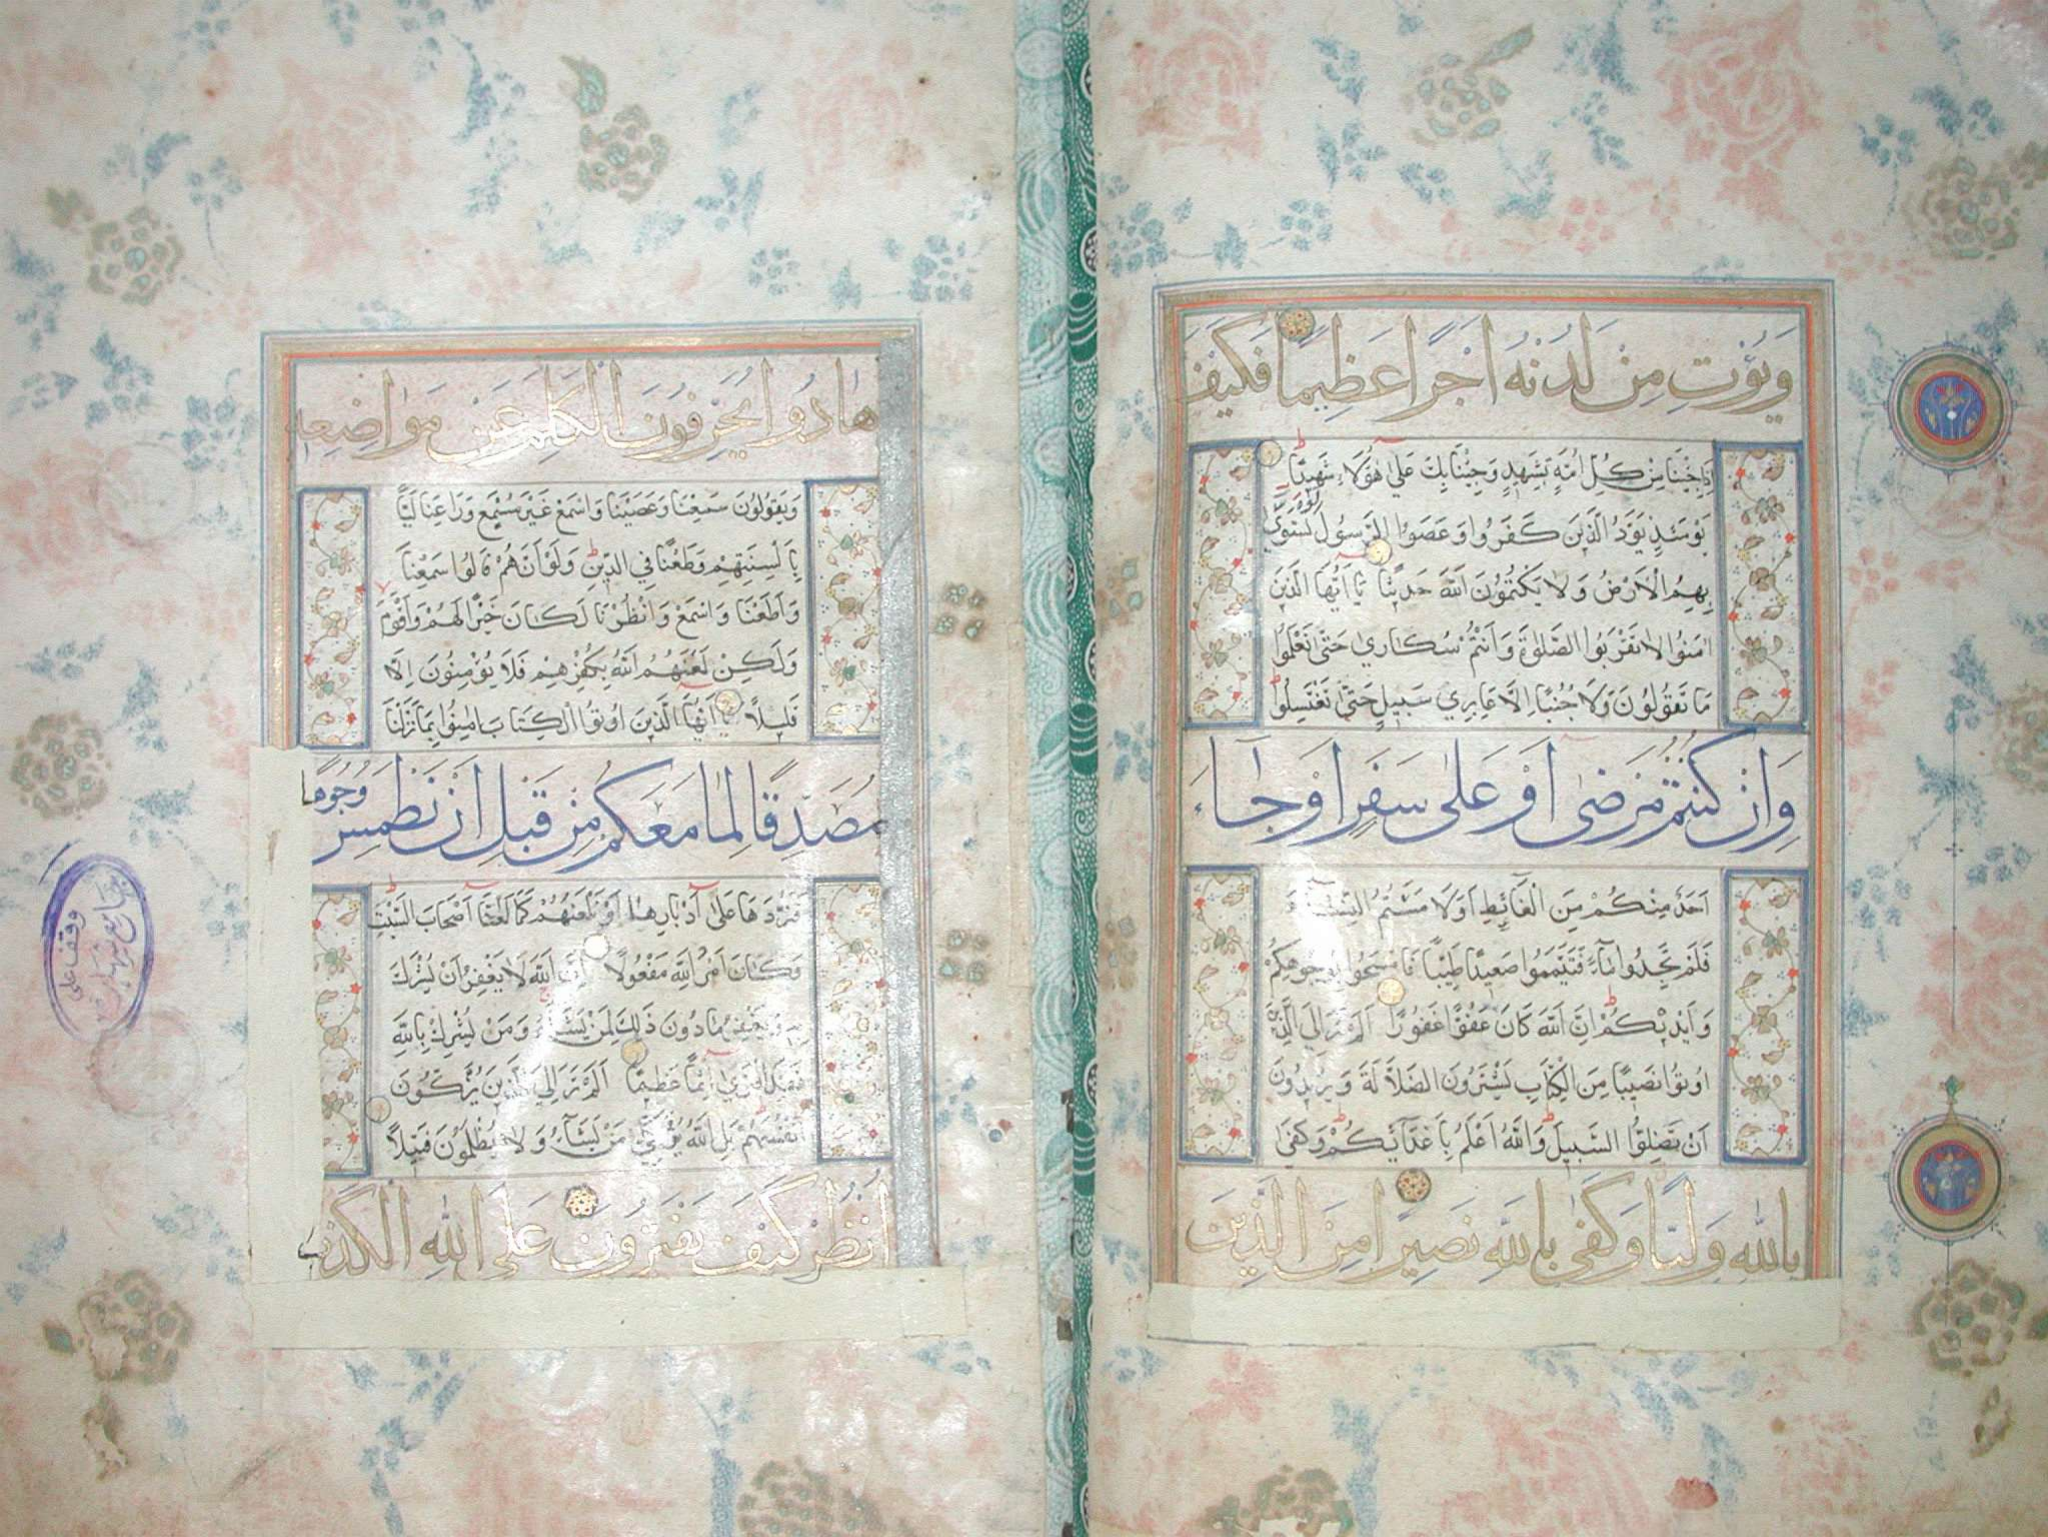 وَيُؤْتِ مِنْ لَدُنْهُ اَجْرًا عَظِيمًا فَكَيْفَ
اِذَا جِئْنَا مِنْ كُلِّ اُمَّةٍ بِشَهِيدٍ وَجِئْنَا بِكَ عَلٰى هٰؤُلَاءِ شَهِيدًا
يَوْمَئِذٍ يَوَدُّ الَّذِينَ كَفَرُوا وَعَصَوُا الرَّسُولَ لَوْ تُسَوَّى
بِهِمُ الْاَرْضُ وَلَا يَكْتُمُونَ اللّٰهَ حَدِيثًا يَا اَيُّهَا الَّذِينَ
اٰمَنُوا لَا تَقْرَبُوا الصَّلٰوةَ وَاَنْتُمْ سُكَارٰى حَتّٰى تَعْلَمُوا
مَا تَقُولُونَ وَلَا جُنُبًا اِلَّا عَابِرِي سَبِيلٍ حَتّٰى تَغْتَسِلُوا
وَاِنْ كُنْتُمْ مَرْضٰى اَوْ عَلٰى سَفَرٍ اَوْ جَاءَ
اَحَدٌ مِنْكُمْ مِنَ الْغَائِطِ اَوْ لَامَسْتُمُ النِّسَاءَ
فَلَمْ تَجِدُوا مَاءً فَتَيَمَّمُوا صَعِيدًا طَيِّبًا فَامْسَحُوا بِوُجُوهِكُمْ
وَاَيْدِيكُمْ اِنَّ اللّٰهَ كَانَ عَفُوًّا غَفُورًا اَلَمْ تَرَ اِلَى الَّذِينَ
اُوتُوا نَصِيبًا مِنَ الْكِتَابِ يَشْتَرُونَ الضَّلَالَةَ وَيُرِيدُونَ
اَنْ تَضِلُّوا السَّبِيلَ وَاللّٰهُ اَعْلَمُ بِاَعْدَائِكُمْ وَكَفٰى
بِاللّٰهِ وَلِيًّا وَكَفٰى بِاللّٰهِ نَصِيرًا مِنَ الَّذِينَ
هَادُوا يُحَرِّفُونَ الْكَلِمَ عَنْ مَوَاضِعِهِ
وَيَقُولُونَ سَمِعْنَا وَعَصَيْنَا وَاسْمَعْ غَيْرَ مُسْمَعٍ وَرَاعِنَا لَيًّا
بِاَلْسِنَتِهِمْ وَطَعْنًا فِي الدِّينِ وَلَوْ اَنَّهُمْ قَالُوا سَمِعْنَا
وَاَطَعْنَا وَاسْمَعْ وَانْظُرْنَا لَكَانَ خَيْرًا لَهُمْ وَاَقْوَمَ
وَلٰكِنْ لَعَنَهُمُ اللّٰهُ بِكُفْرِهِمْ فَلَا يُؤْمِنُونَ اِلَّا
قَلِيلًا يَا اَيُّهَا الَّذِينَ اُوتُوا الْكِتَابَ اٰمِنُوا بِمَا نَزَّلْنَا
مُصَدِّقًا لِمَا مَعَكُمْ مِنْ قَبْلِ اَنْ نَطْمِسَ وُجُوهًا
فَنَرُدَّهَا عَلٰى اَدْبَارِهَا اَوْ نَلْعَنَهُمْ كَمَا لَعَنَّا اَصْحَابَ السَّبْتِ
وَكَانَ اَمْرُ اللّٰهِ مَفْعُولًا اِنَّ اللّٰهَ لَا يَغْفِرُ اَنْ يُشْرَكَ
بِهِ وَيَغْفِرُ مَا دُونَ ذٰلِكَ لِمَنْ يَشَاءُ وَمَنْ يُشْرِكْ بِاللّٰهِ
فَقَدِ افْتَرٰى اِثْمًا عَظِيمًا اَلَمْ تَرَ اِلَى الَّذِينَ يُزَكُّونَ
اَنْفُسَهُمْ بَلِ اللّٰهُ يُزَكِّي مَنْ يَشَاءُ وَلَا يُظْلَمُونَ فَتِيلًا
اُنْظُرْ كَيْفَ يَفْتَرُونَ عَلَى اللّٰهِ الْكَذِبَ
وقف على
جامع